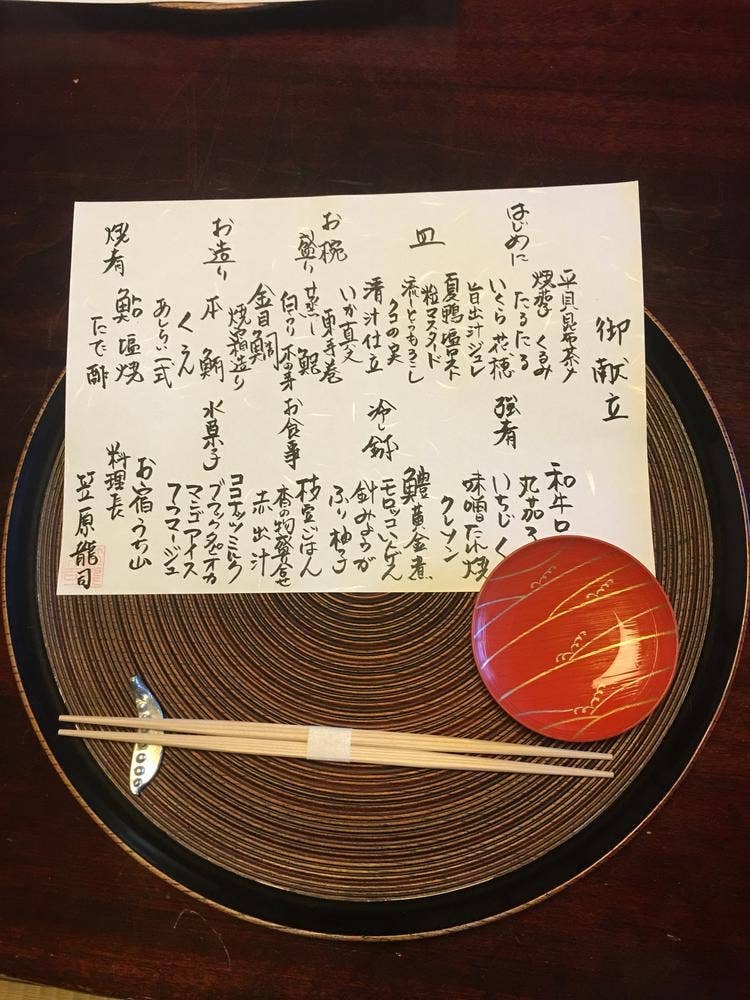 御献立
はじめに
平貝昆布茶〆
焼き くるみ
たるたる
いくら 花穂
旨出汁ジュレ
皿
夏鴨塩ロースト
粒マスタード
流しとうもろこし
タコの実
お椀
清汁仕立
いか真丈
蒸し鮑
白つり
お造り
金目鯛
焼霜造り
本鮪
くえ
あしらい一式
焼肴
鮎塩焼
たで酢
強肴
和牛ロ
丸茄子
いちじく
味噌たれ焼
クレソン
冷し鉢
鱧黄金煮
モロッコいんげん
針みょうが
ふり柚子
お食事
枝豆ごはん
香の物盛合せ
赤出汁
水菓子
ココナッツミルク
ブラックタピオカ
マンゴアイス
アワマージュ
お宿うち山
料理長
笠原龍司